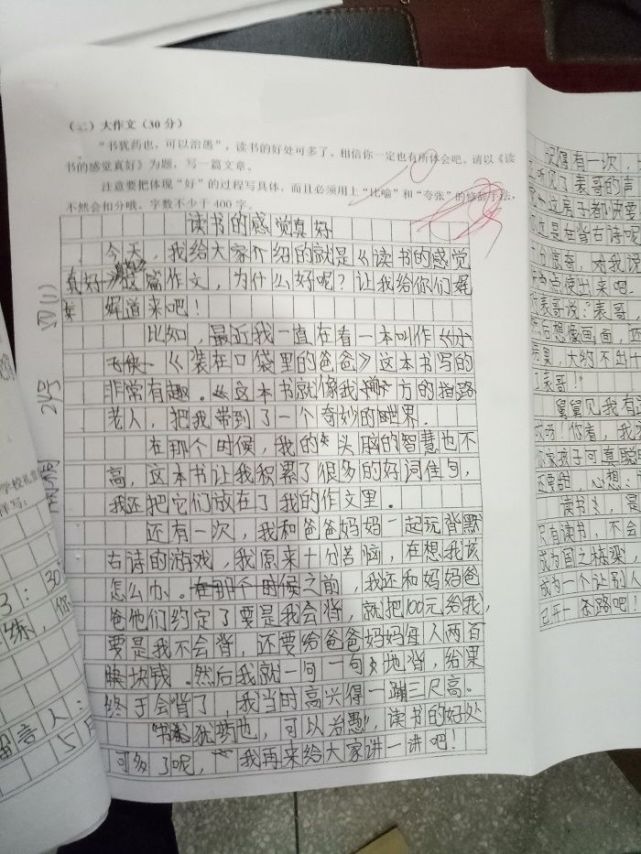 （二）大作文（30 分）
“书犹药也，可以治愚”，读书的好处可多了，相信你一定也有所体会吧，请以《读
书的感觉真好》为题，写一篇文章。
注意要把体现“好”的过程写具体，而且必须用上“比喻”和“夸张”的修辞手法，
不然会扣分哦。字数不少于 400 字。
读书的感觉真好
今天，我给大家介绍的就是《读书的感觉
真好》这篇作文，为什么好呢？让我给你们娓
娓道来吧！
比如，最近我一直在看一本叫作
《装在口袋里的爸爸》这本书写的
非常有趣。这本书就像我方的指路
老人，把我带到了一个奇妙的世界。
在那个时候，我的头脑的智慧也不
高，这本书让我积累了很多的好词佳句，
我还把它们放在了我的作文里。
还有一次，我和爸爸妈妈一起玩背默
古诗的游戏，我原来十分苦恼，在想我该
怎么办。在那个时候之前，我还和妈妈爸
爸他们约定了要是我会背，就把100元给我，
要是我不会背，还要给爸爸妈妈每人两百
块钱。然后我就一句一句地背，结果
终于会背了，我当时高兴得一蹦三尺高。
“书犹药也，可以治愚”，读书的好处
可多了呢，我再来给大家讲一讲吧！
四(1)
2号
记得有一次，
听见了表哥的声
在背古诗呢
使出来吧。
表哥说：表哥，
后想像画面，
大约不出十
表哥！
舅舅见我有
你看，我
家孩子可真聪明
心想：
读书
只有读书，不会
成为国之栋梁
成为一个
路吧！
3：30
练，你
留言人：
5月